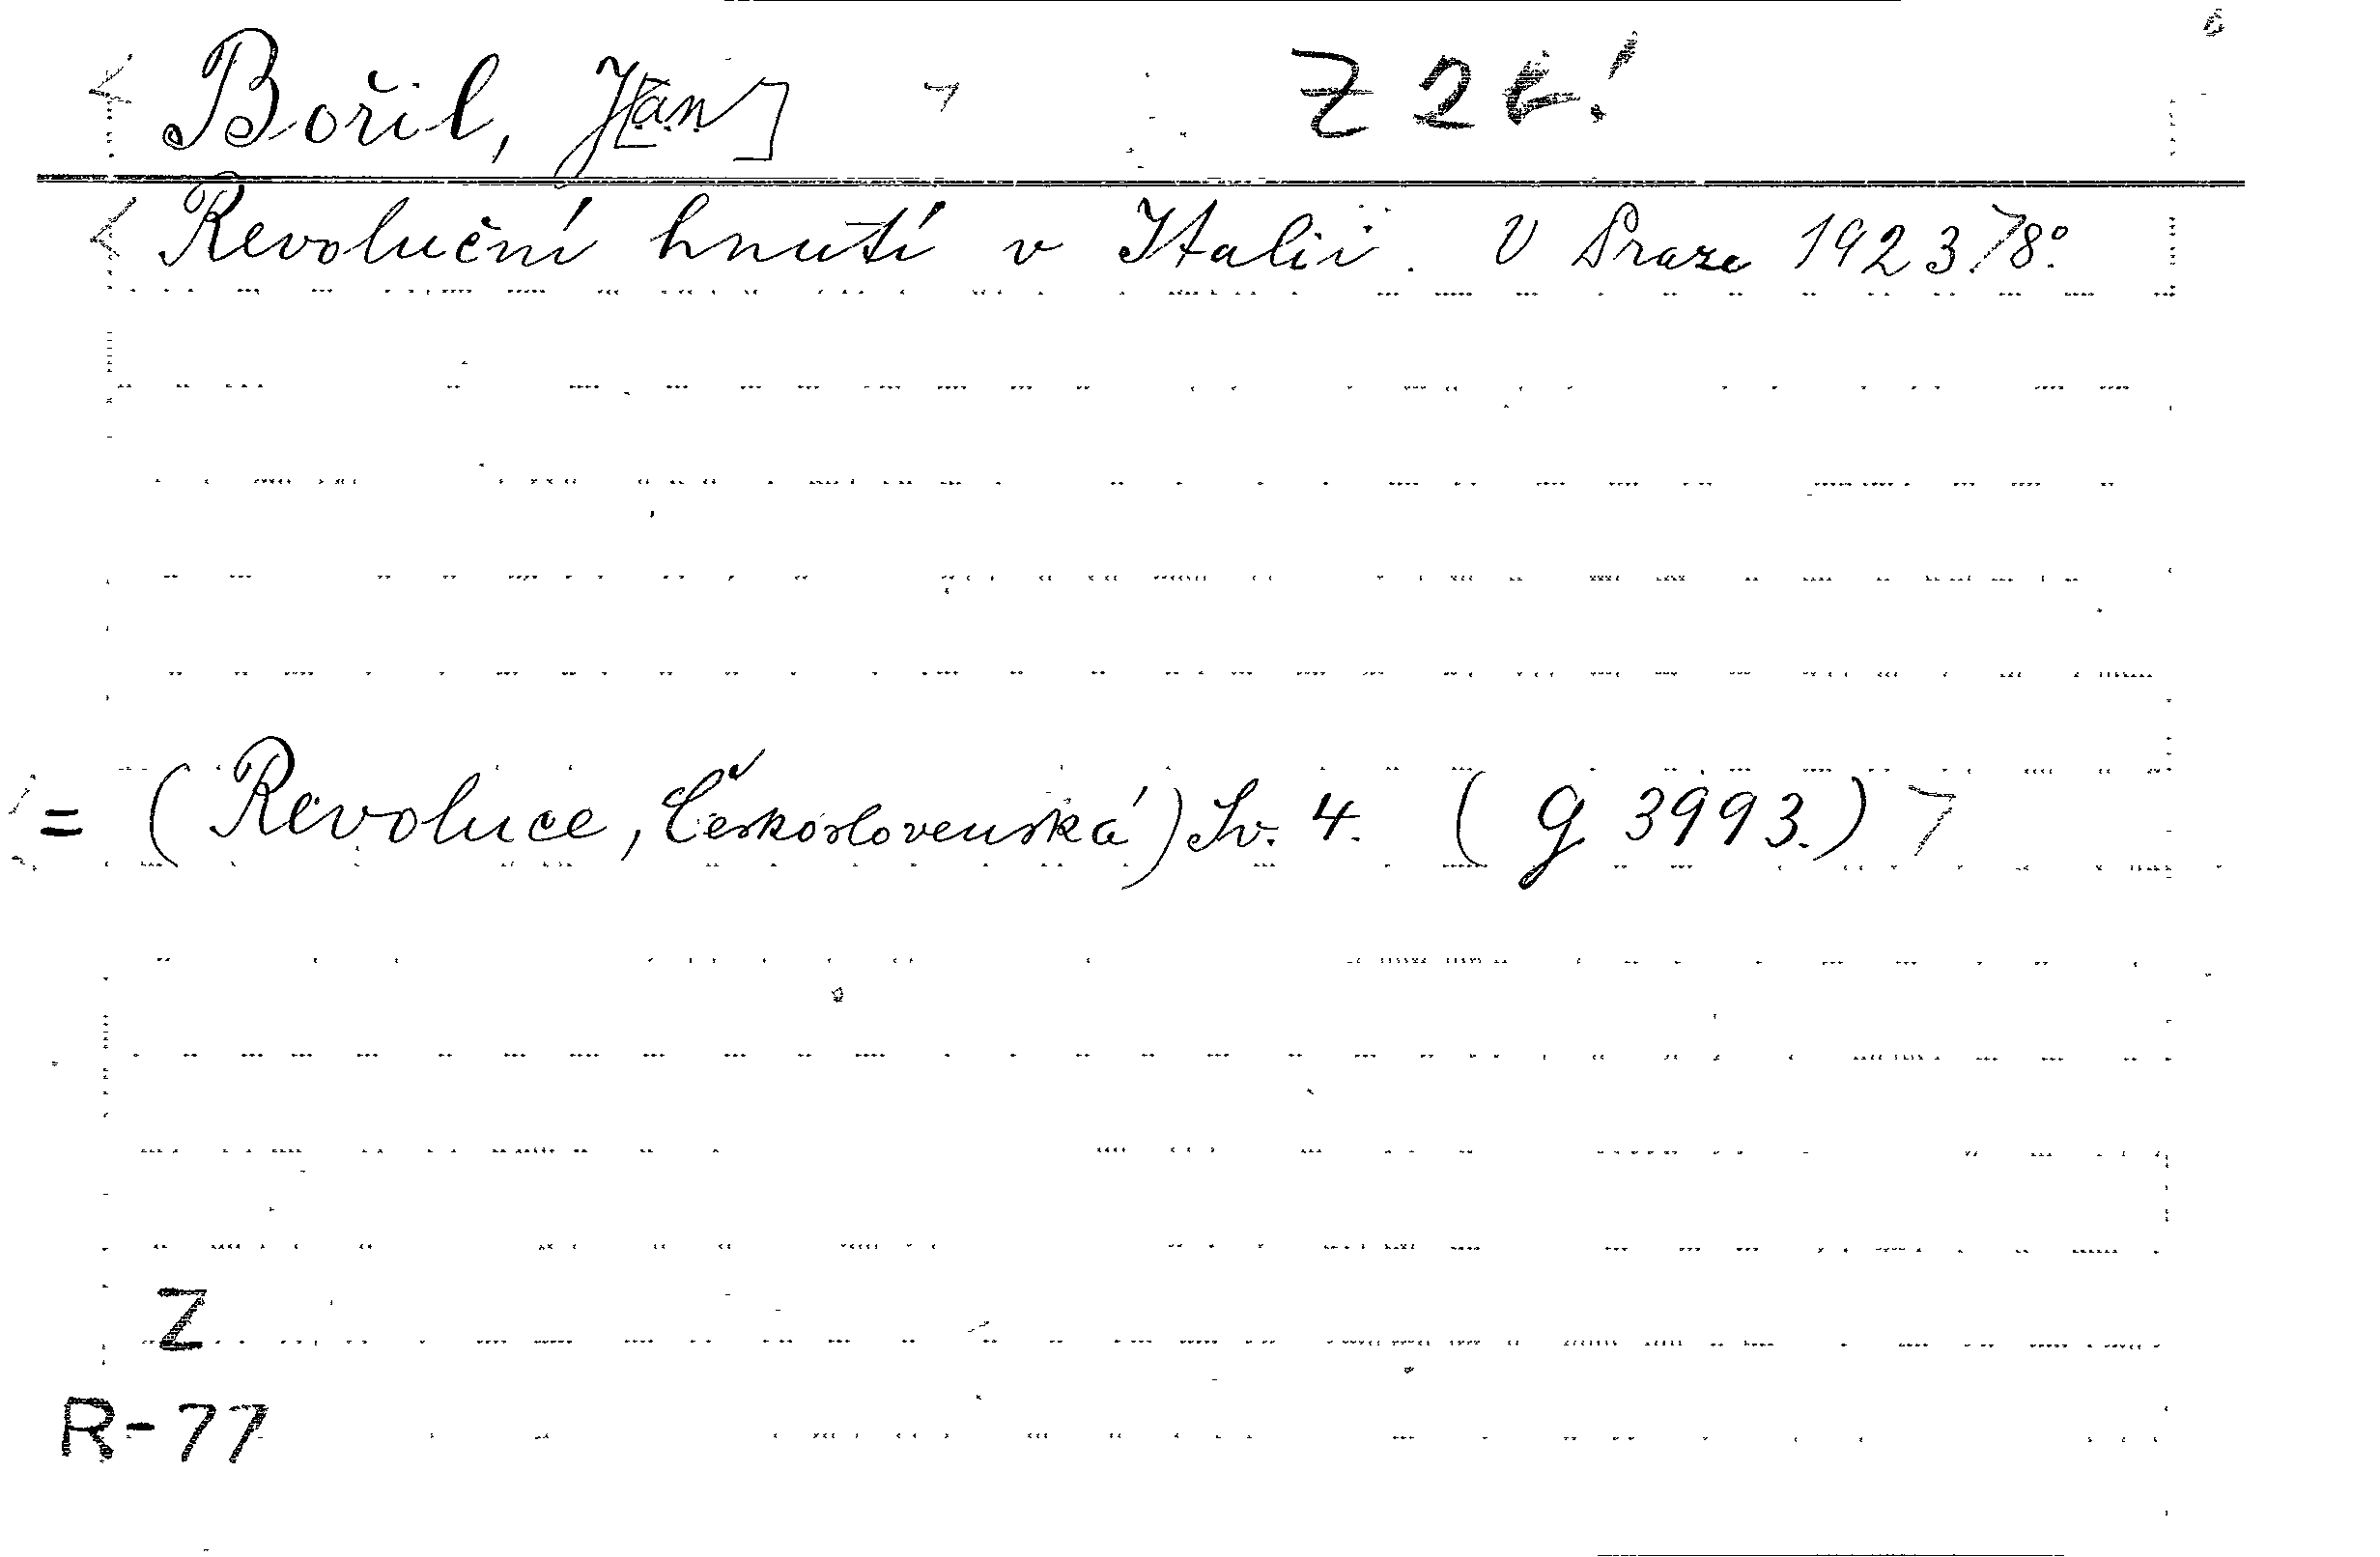 < Bořil, J[an] >
< Revoluční hnutí v Italii. V Praze 1923. > 8°.
= (Revoluce, Československá) Sv. 4. (g 3993.) >
Z
R-77